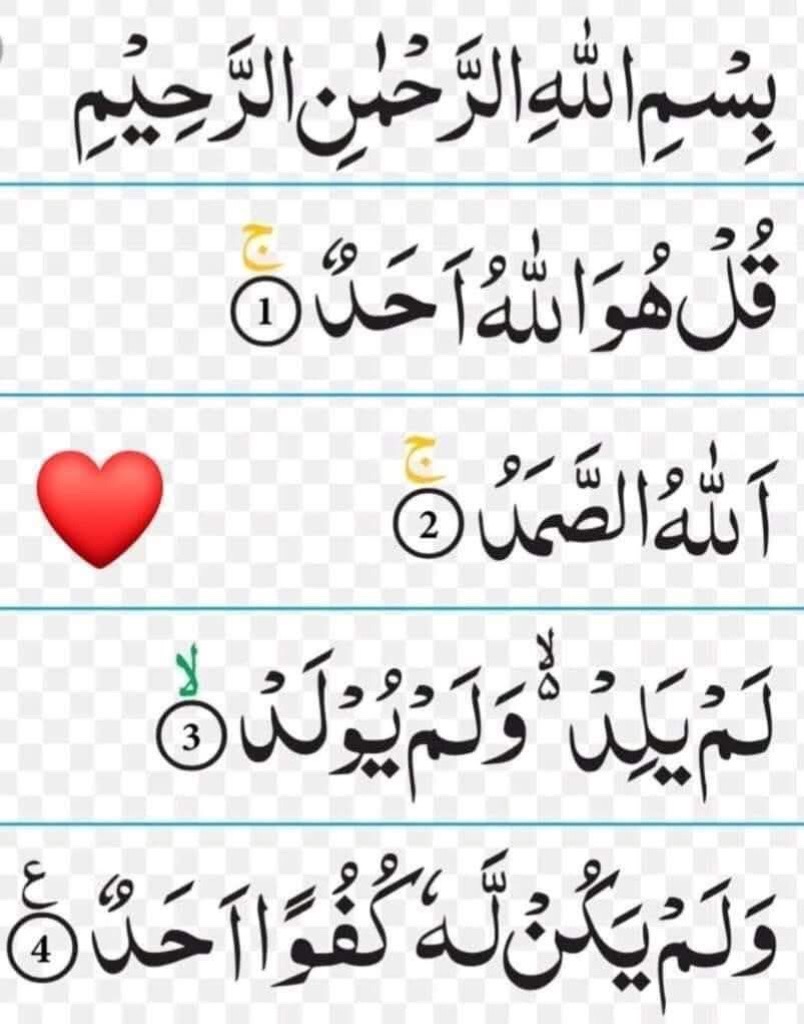 بِسْمِ اللّٰهِ الرَّحْمٰنِ الرَّحِيْمِ
قُلْ هُوَ اللّٰهُ اَحَدٌ ۚ ①
اَللّٰهُ الصَّمَدُ ۚ ②
لَمْ يَلِدْ ۙ۵ وَلَمْ يُوْلَدْ ۙ ③
وَلَمْ يَكُنْ لَّهٗ كُفُوًا اَحَدٌ ع ④